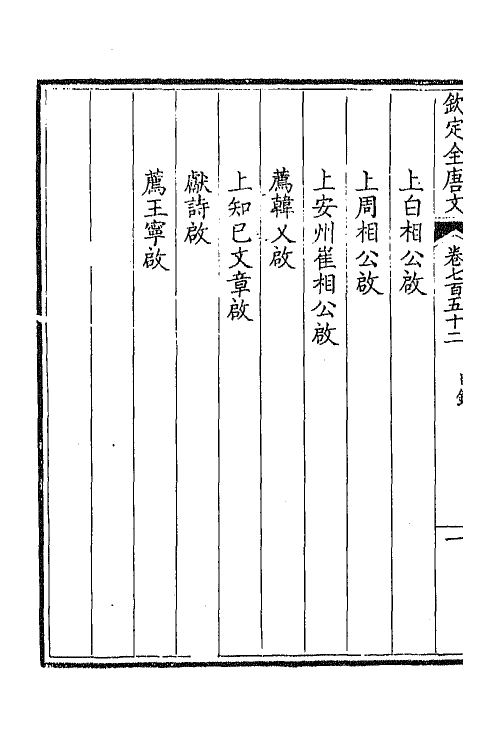 欽定全唐文 卷七百五十二 目錄 一
上白相公啟
上周相公啟
上安州崔相公啟
薦韓乂啟
上知已文章啟
獻詩啟
薦王寧啟